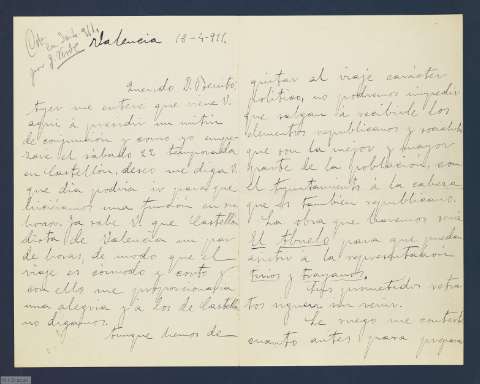 Valencia 18-4-911.
Querido D. Benito:
Ayer me enteré que viene V.
aquí á presidir un mitin
de conjunción y como yo empe-
zaré el sábado 22 temporada
en Castellón, deseo me diga V.
que día podría ir para que
hiciéramos una función en su
honor. Ya sabe V. que Castellón
dista de Valencia un par
de horas, de modo que el
viaje es cómodo y corto y
con ello me proporcionaría
una alegría y á los de Castellón
no digamos.
Aunque hemos de
quitar al viaje carácter
político, no podremos impedir
que salgan á recibirle los
elementos republicanos y socialistas
que son la mejor y mayor
parte de la población, con
el Ayuntamiento á la cabeza
que es también republicano.
La obra que haremos será
El Abuelo para que puedan
asistir á la representación
tirios y troyanos.
Los prometidos retra-
tos siguen sin venir.
Le ruego me conteste
cuanto antes para preparar